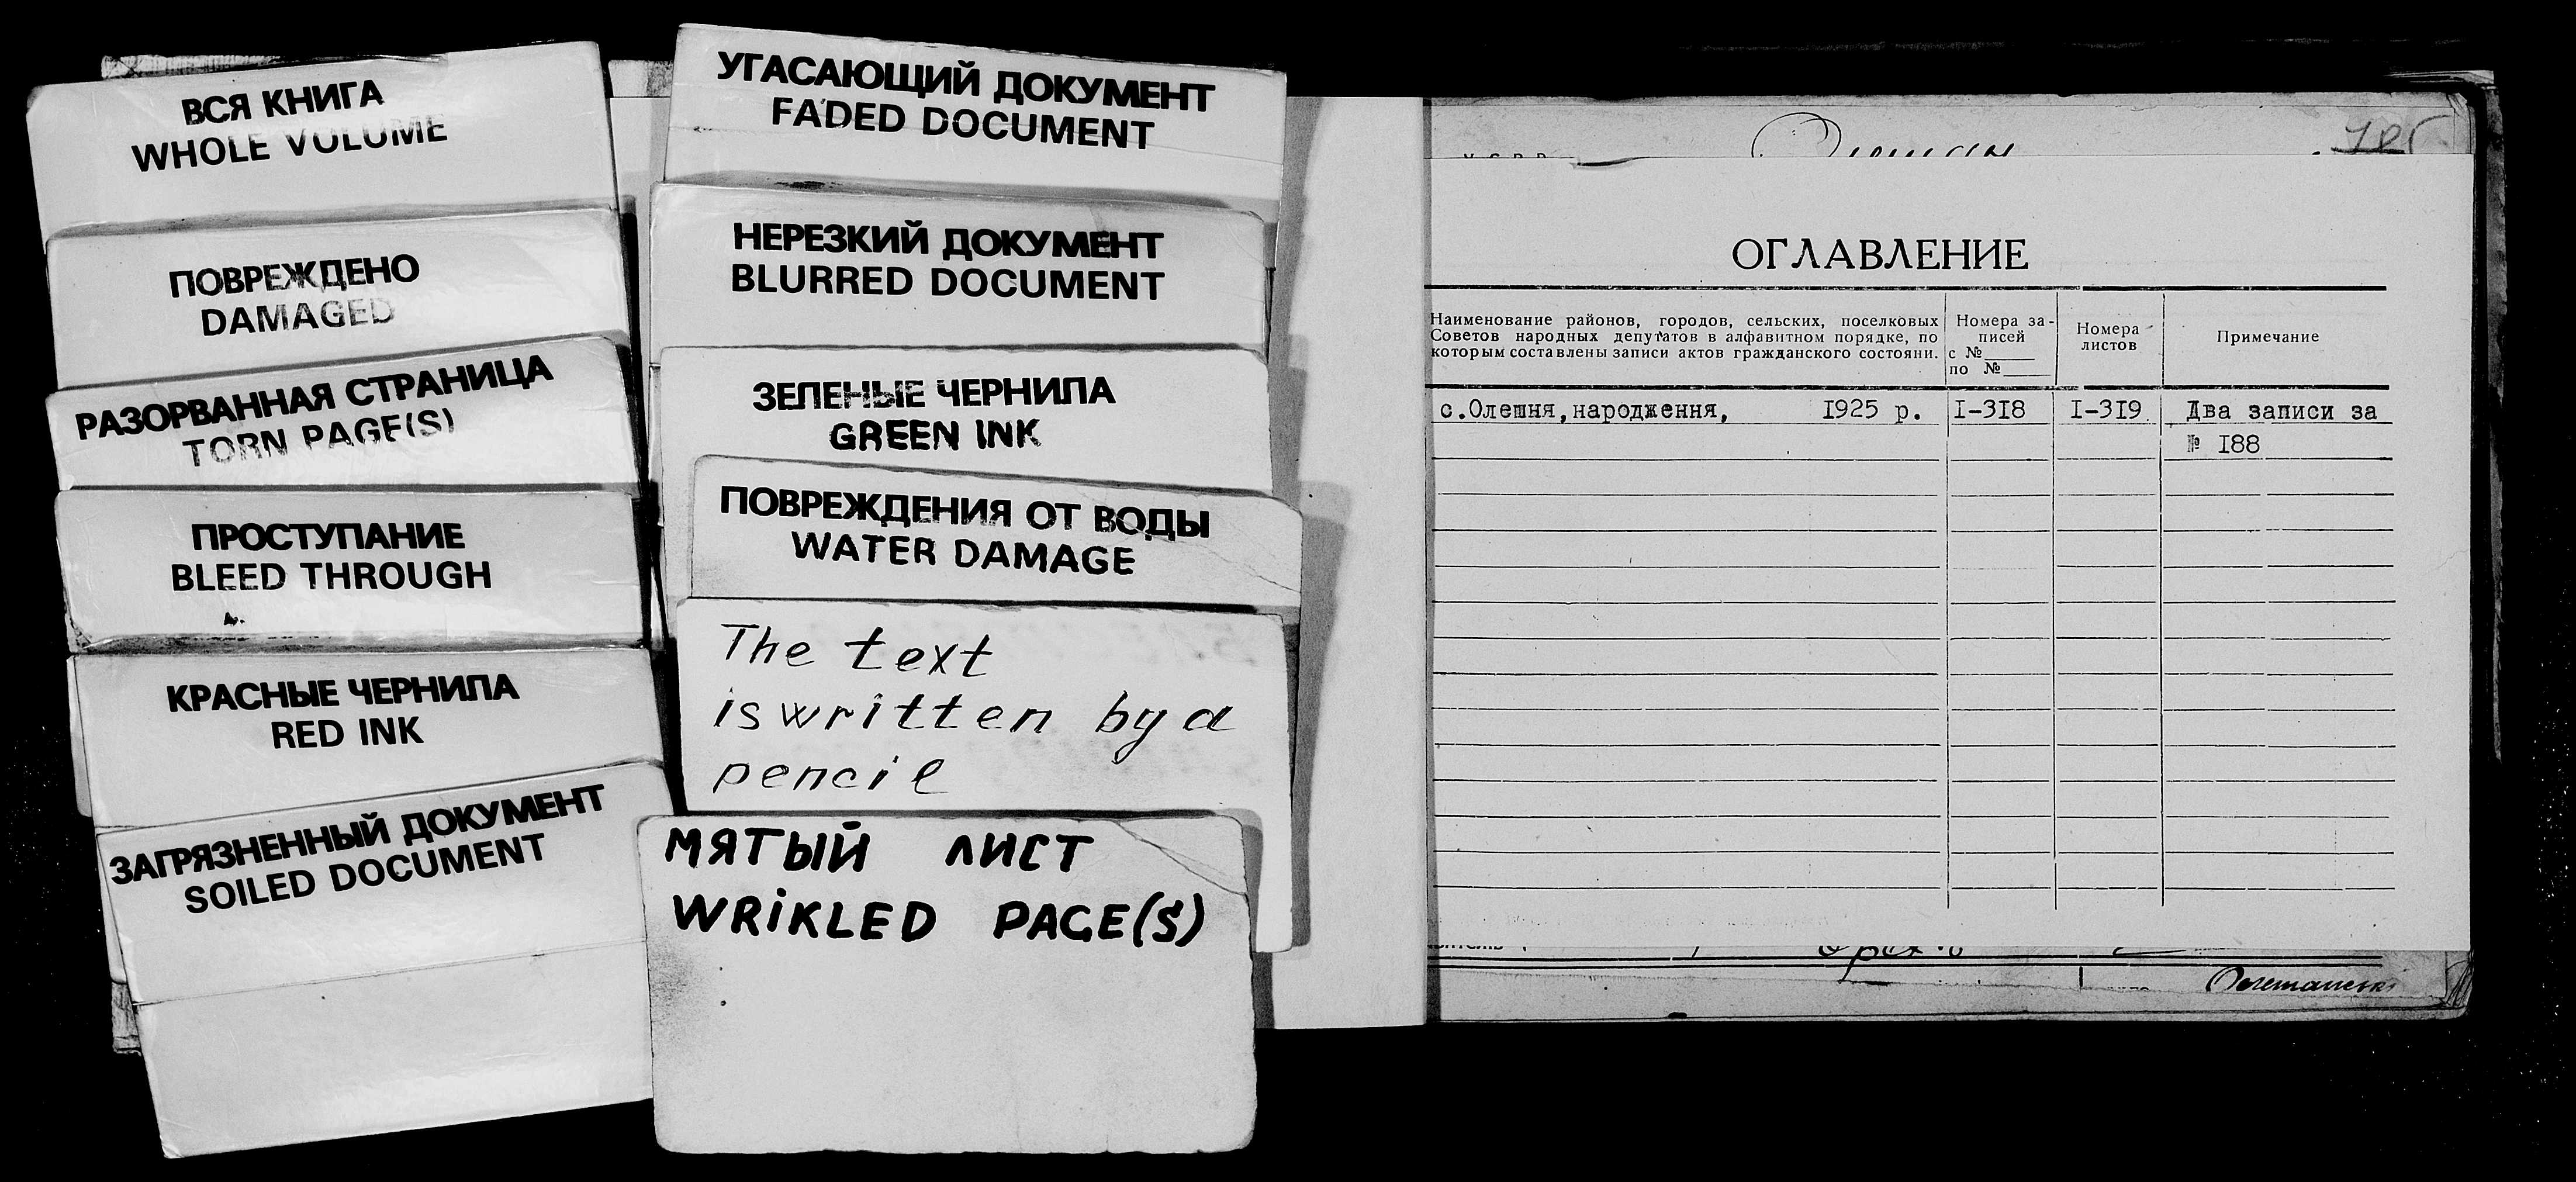 ВСЯ КНИГА
WHOLE VOLUME
ПОВРЕЖДЕНО
DAMAGED
РАЗОРВАННАЯ СТРАНИЦА
TORN PAGE(S)
ПРОСТУПАНИЕ
BLEED THROUGH
КРАСНЫЕ ЧЕРНИЛА
RED INK
ЗАГРЯЗНЕННЫЙ ДОКУМЕНТ
SOILED DOCUMENT
УГАСАЮЩИЙ ДОКУМЕНТ
FADED DOCUMENT
НЕРЕЗКИЙ ДОКУМЕНТ
BLURRED DOCUMENT
ЗЕЛЕНЫЕ ЧЕРНИЛА
GREEN INK
ПОВРЕЖДЕНИЯ ОТ ВОДЫ
WATER DAMAGE
The text
is written by a
pencil
МЯТЫЙ ЛИСТ
WRIKLED PAGE(S)
ОГЛАВЛЕНИЕ
Наименование районов, городов, сельских, поселковых
Советов народных депутатов в алфавитном порядке, по
которым составлены записи актов гражданского состояни.
Номера за-
писей
с №
по №
Номера
листов
Примечание
с.Олешня,народження, 1925 р. I-3I8 I-3I9 Два записи за
№ I88